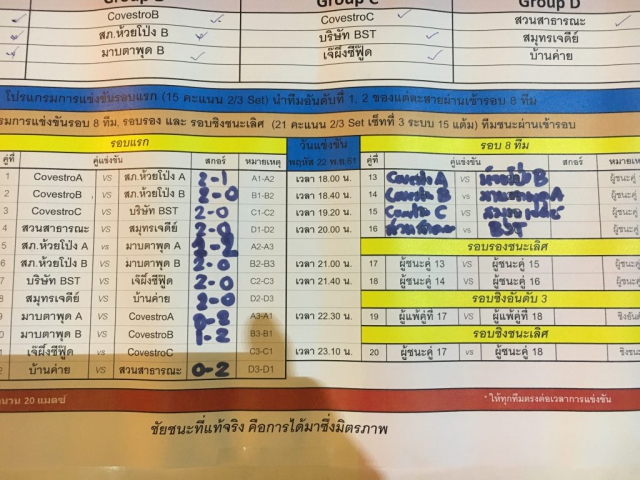 Group B Group C Group D
CovestroB CovestroC สวนสาธารณะ
สภ.ห้วยโป่ง B บริษัท BST สมุทรเจดีย์
มาบตาพุด B เจ๊ฝิ้งซีฟู๊ด บ้านค่าย
โปรแกรมการแข่งขันรอบแรก (15 คะแนน 2/3 Set) นำทีมอันดับที่ 1, 2 ของแต่ละสายผ่านเข้ารอบ 8 ทีม
รมการแข่งขันรอบ 8 ทีม, รอบรอง และ รอบชิงชนะเลิศ (21 คะแนน 2/3 Set เซ็ทที่ 3 ระบบ 15 แต้ม) ทีมชนะผ่านเข้ารอบ
รอบแรก วันแข่งขัน รอบ 8 ทีม
คู่ที่ คู่แข่งขัน สกอร์ หมายเหตุ พฤหัส 22 พ.ย.61 คู่ที่ คู่แข่งขัน สกอร์ หมายเห
1 CovestroA VS สภ.ห้วยโป่ง A 2-1 A1-A2 เวลา 18.00 น. 13 Covestro A VS ห้วยโป่ง B ผู้ชนะคู่
2 CovestroB VS สภ.ห้วยโป่ง B 2-0 B1-B2 เวลา 18.40 น. 14 Covestro B VS มาบตาพุด A ผู้ชนะคู่
3 CovestroC VS บริษัท BST 2-0 C1-C2 เวลา 19.20 น. 15 Covestro C VS สมุทรเจดีย์ ผู้ชนะคู่
4 สวนสาธารณะ VS สมุทรเจดีย์ 2-0 D1-D2 เวลา 20.00 น. 16 สวนสาธารณะ VS BST ผู้ชนะคู่
5 สภ.ห้วยโป่ง A VS มาบตาพุด A A2-A3 รอบรองชนะเลิศ
6 สภ.ห้วยโป่ง B VS มาบตาพุด B 2-0 B2-B3 เวลา 21.00 น. 17 ผู้ชนะคู่ 13 VS ผู้ชนะคู่ 15
7 บริษัท BST VS เจ๊ฝิ้งซีฟู๊ด 2-0 C2-C3 เวลา 21.40 น. 18 ผู้ชนะคู่ 14 VS ผู้ชนะคู่ 16
8 สมุทรเจดีย์ VS บ้านค่าย 2-0 D2-D3 รอบชิงอันดับ 3
9 มาบตาพุด A VS CovestroA 0-2 A3-A1 เวลา 22.30 น. 19 ผู้แพ้คู่ที่ 17 VS ผู้แพ้คู่ 18 ชิงอันดั
0 มาบตาพุด B VS CovestroB 1-2 B3-B1 รอบชิงชนะเลิศ
1 เจ๊ฝิ้งซีฟู๊ด VS CovestroC C3-C1 เวลา 23.10 น. 20 ผู้ชนะคู่ 17 VS ผู้ชนะคู่ 18 ชิงชนะ
2 บ้านค่าย VS สวนสาธารณะ 0-2 D3-D1
จำนวน 20 แมตซ์ * ให้ทุกทีมตรงต่อเวลาการแข่งขัน
ชัยชนะที่แท้จริง คือการได้มาซึ่งมิตรภาพ